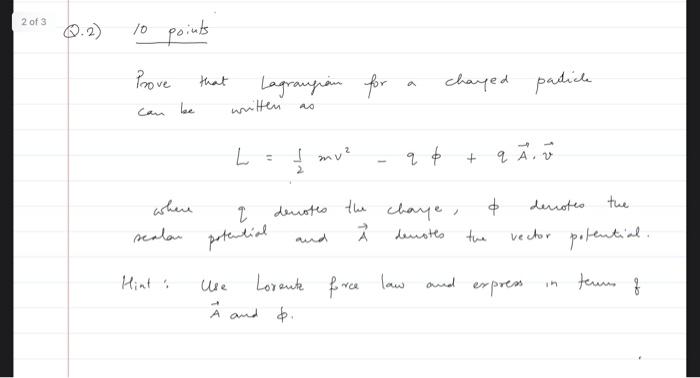 2 of 3
Q.2) 10 points
Prove that Lagrangian for a charged particle
can be written as
L = 1/2 mv² - q ϕ + q A⃗ . v⃗
where q denotes the charge, ϕ denotes the
scalar potential and A⃗ denotes the vector potential.
Hint : Use Lorentz force law and express in terms of
A⃗ and ϕ.